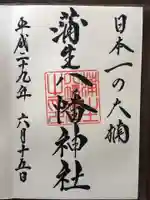 日本一の大楠
蒲生八幡神社
平成二十九年 六月十五日